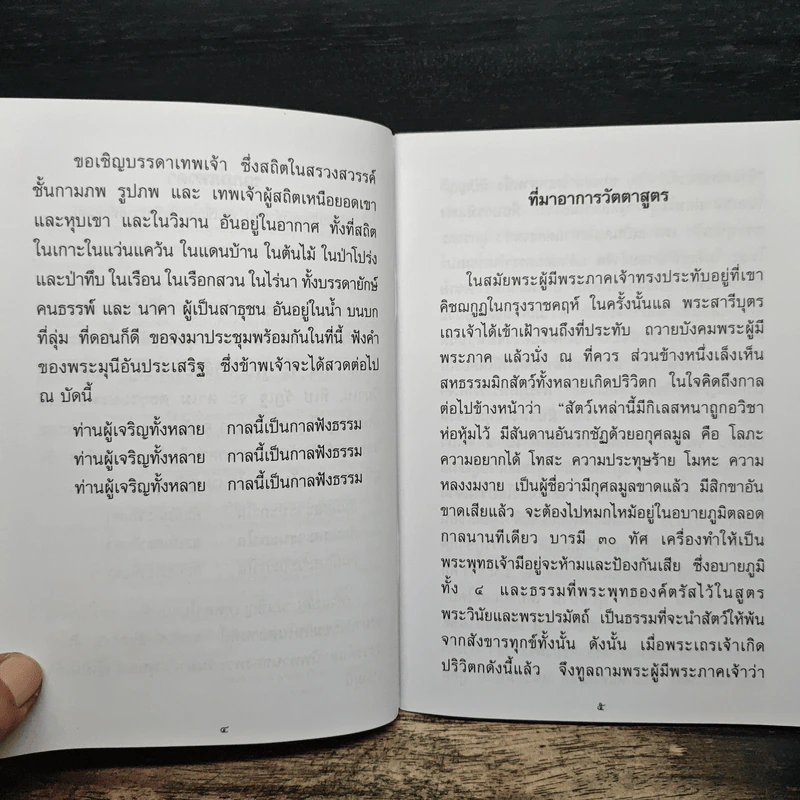 ขอเชิญบรรดาเทพเจ้า ซึ่งสถิตในสรวงสวรรค์
ชั้นกามภพ รูปภพ และ เทพเจ้าผู้สถิตเหนือยอดเขา
และหุบเขา และในวิมาน อันอยู่ในอากาศ ทั้งที่สถิต
ในเกาะในแว่นแคว้น ในแดนบ้าน ในต้นไม้ ในป่าโปร่ง
และป่าทึบ ในเรือน ในเรือกสวน ในไร่นา ทั้งบรรดายักษ์
คนธรรพ์ และ นาคา ผู้เป็นสาธุชน อันอยู่ในน้ำ บนบก
ที่ลุ่ม ที่ดอนก็ดี ขอจงมาประชุมพร้อมกันในที่นี้ ฟังคำ
ของพระมุนีอันประเสริฐ ซึ่งข้าพเจ้าจะได้สวดต่อไป
ณ บัดนี้
ท่านผู้เจริญทั้งหลาย กาลนี้เป็นกาลฟังธรรม
ท่านผู้เจริญทั้งหลาย กาลนี้เป็นกาลฟังธรรม
ท่านผู้เจริญทั้งหลาย กาลนี้เป็นกาลฟังธรรม
๔
ที่มาอาการวัตตาสูตร
ในสมัยพระผู้มีพระภาคเจ้าทรงประทับอยู่ที่เขา
คิชฌกูฏในกรุงราชคฤห์ ในครั้งนั้นแล พระสารีบุตร
เถรเจ้าได้เข้าเฝ้าจนถึงที่ประทับ ถวายบังคมพระผู้มี
พระภาค แล้วนั่ง ณ ที่ควร ส่วนข้างหนึ่งเล็งเห็น
สหธรรมมิกสัตว์ทั้งหลายเกิดปริวิตก ในใจคิดถึงกาล
ต่อไปข้างหน้าว่า “สัตว์เหล่านี้มีกิเลสหนาถูกอวิชา
ห่อหุ้มไว้ มีสันดานอันรกชัฏด้วยอกุศลมูล คือ โลภะ
ความอยากได้ โทสะ ความประทุษร้าย โมหะ ความ
หลงงมงาย เป็นผู้ชื่อว่ามีกุศลมูลขาดแล้ว มีสิกขาอัน
ขาดเสียแล้ว จะต้องไปหมกไหม้อยู่ในอบายภูมิตลอด
กาลนานทีเดียว บารมี ๓๐ ทัศ เครื่องทำให้เป็น
พระพุทธเจ้ามีอยู่จะห้ามและป้องกันเสีย ซึ่งอบายภูมิ
ทั้ง ๔ และธรรมที่พระพุทธองค์ตรัสไว้ในสูตร
พระวินัยและพระปรมัตถ์ เป็นธรรมที่จะนำสัตว์ให้พ้น
จากสังขารทุกข์ทั้งนั้น ดังนั้น เมื่อพระเถรเจ้าเกิด
ปริวิตกดังนี้แล้ว จึงทูลถามพระผู้มีพระภาคเจ้าว่า
๕